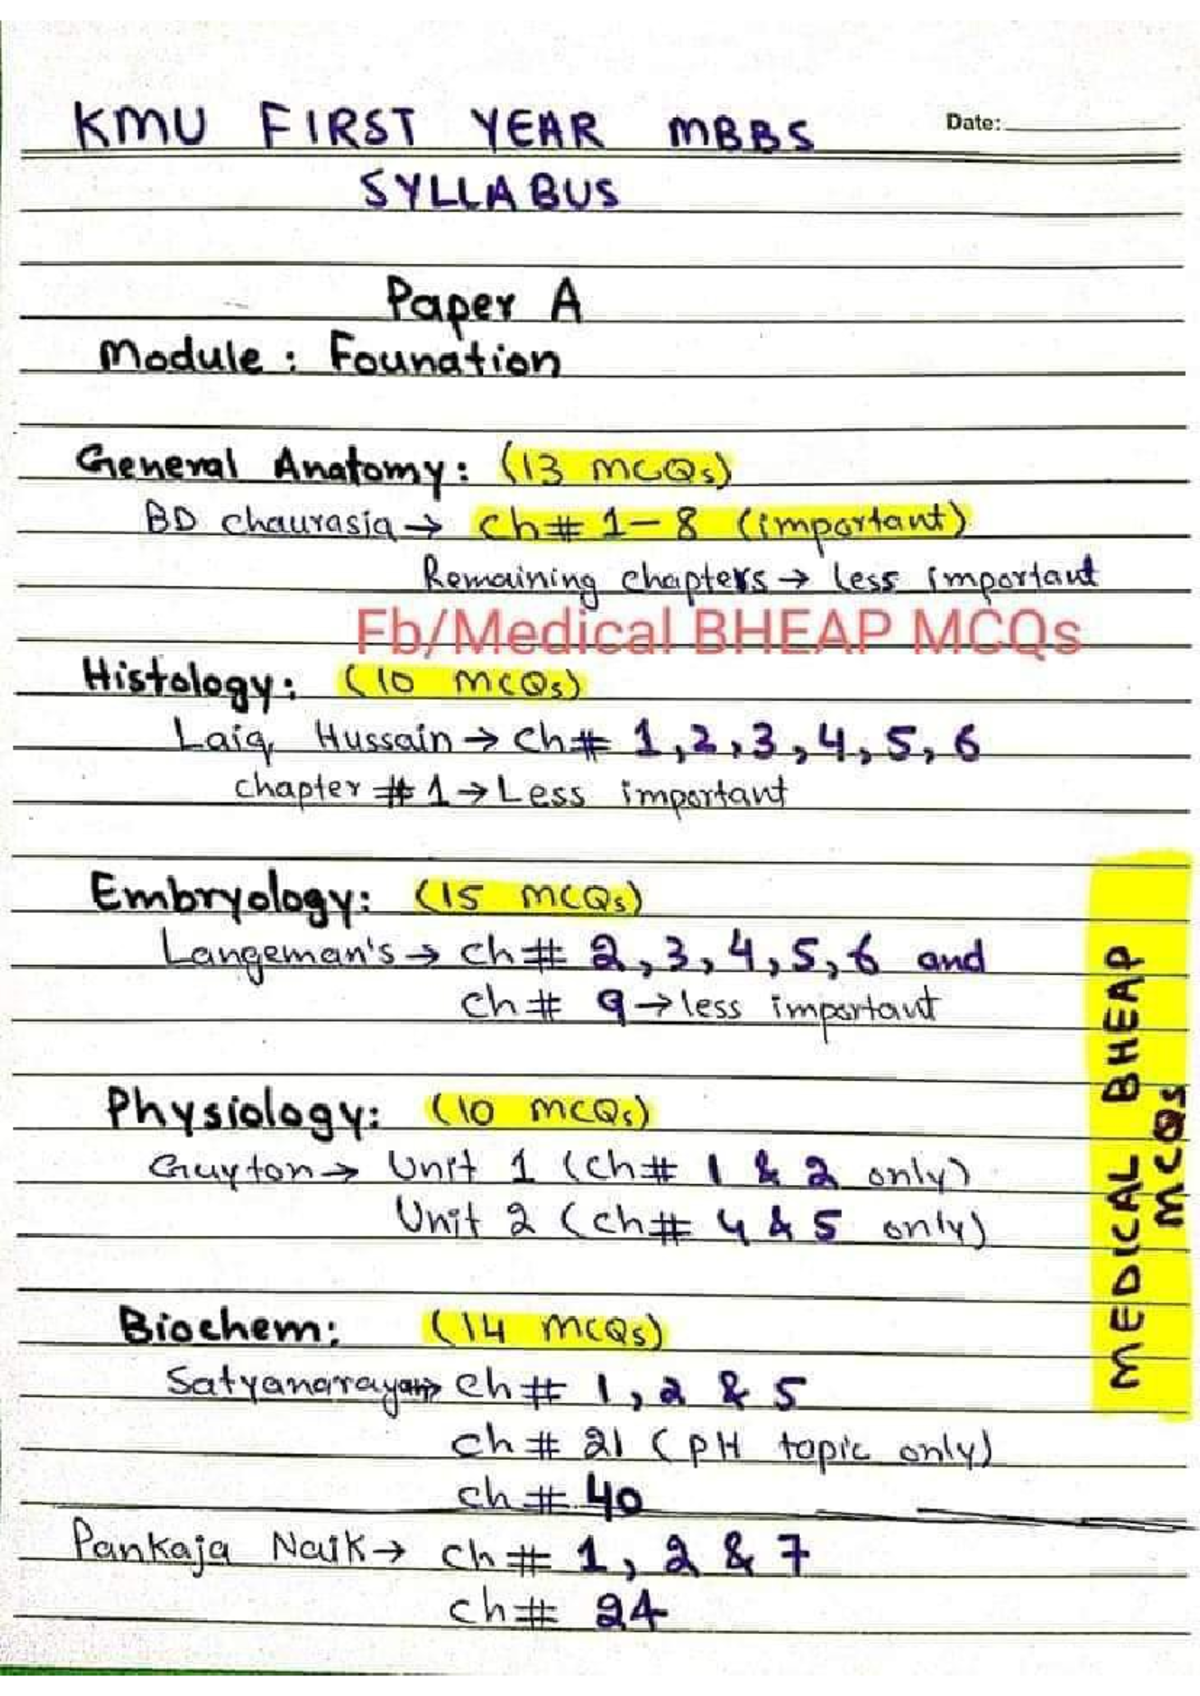 KMU FIRST YEAR MBBS
Date:
SYLLABUS
Paper A
Module : Founation
General Anatomy: (13 MCQs)
BD Chaurasia → Ch# 1-8 (important)
Remaining chapters → less important
Fb/Medical BHEAP MCQs
Histology: (10 MCQs)
Laiq Hussain → Ch# 1,2,3,4,5,6
chapter #1 → Less important
Embryology: (15 MCQs)
Langeman's → ch# 2,3,4,5,6 and
ch# 9 → less important
Physiology: (10 MCQs)
Guyton → Unit 1 (ch# 1 & 2 only)
Unit 2 (ch# 4 & 5 only)
Biochem: (14 MCQs)
Satyanarayan → ch# 1,2 & 5
ch# 21 (PH topic only)
ch# 40
Pankaja Naik → ch# 1, 2 & 7
ch# 24
MEDICAL BHEAP
MCQs